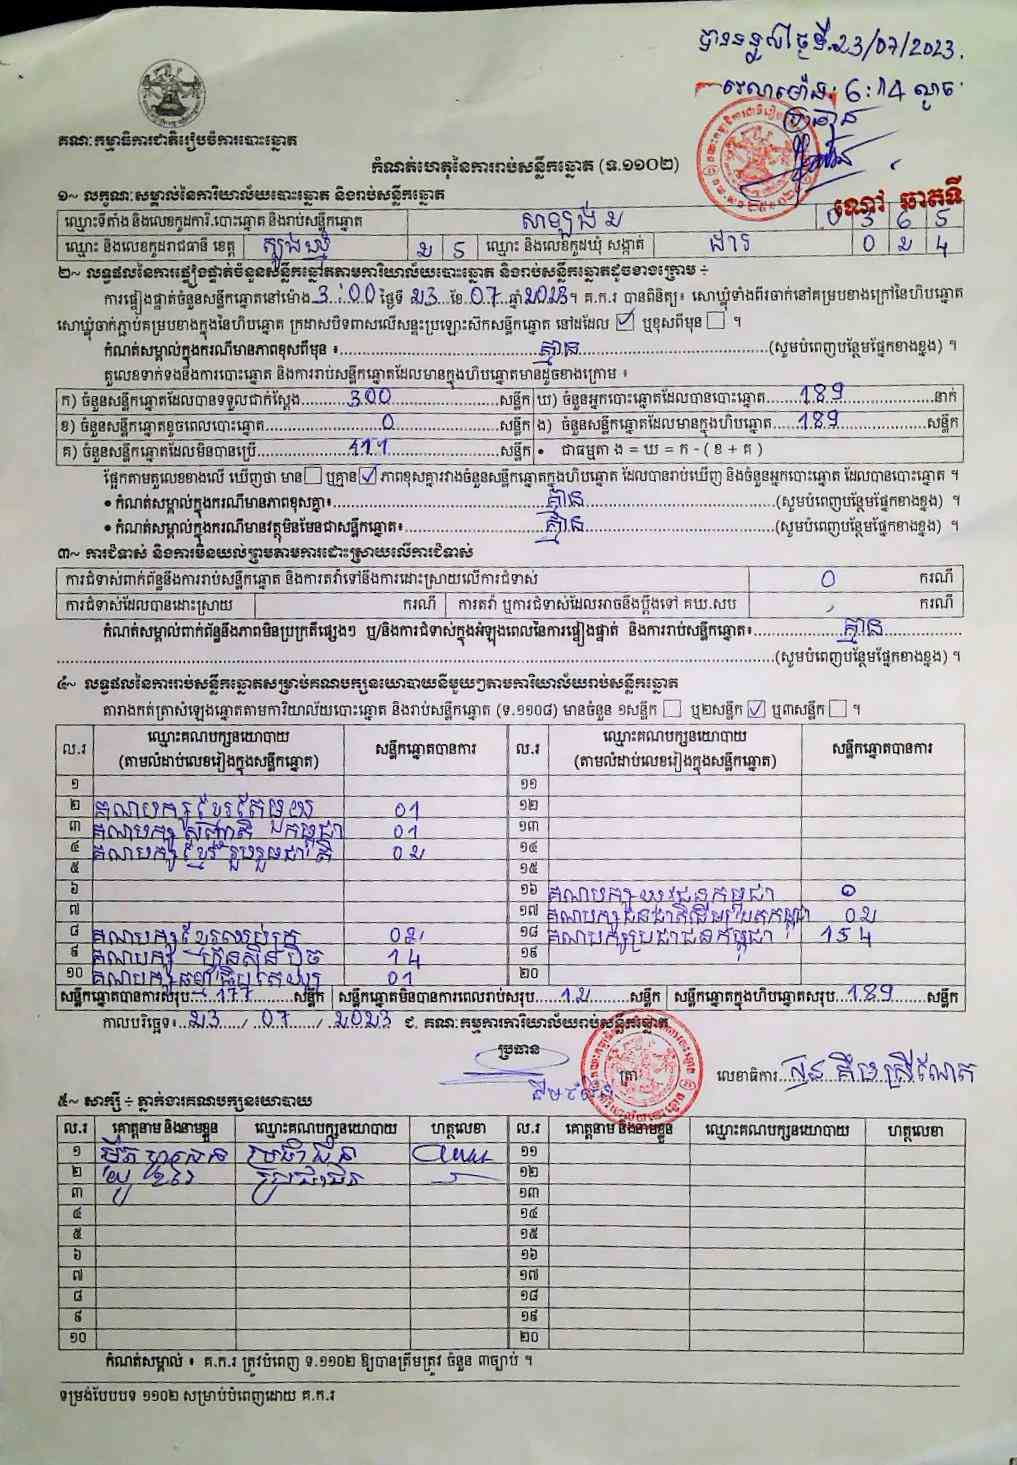 បានទទួលថ្ងៃទី.23/07/2023.
វេលាម៉ោង: 6:14 ល្ងាច
ប្រធាន
គណៈកម្មាធិការជាតិរៀបចំការបោះឆ្នោត
កំណត់ហេតុនៃការរាប់សន្លឹកឆ្នោត (ទ.១១០២)
១~ លក្ខណៈសម្គាល់នៃការិយាល័យបោះឆ្នោត និងរាប់សន្លឹកឆ្នោត
ឈ្មោះទីតាំង និងលេខកូដការិ.បោះឆ្នោត និងរាប់សន្លឹកឆ្នោត 0 3 6 5
ឈ្មោះ និងលេខកូដរាជធានី ខេត្ត ត្បូងឃ្មុំ ២ 5 ឈ្មោះ និងលេខកូដឃុំ សង្កាត់ ដារ 0 ២ 4
២~ លទ្ធផលនៃការផ្ទៀងផ្ទាត់ចំនួនសន្លឹកឆ្នោតតាមការិយាល័យបោះឆ្នោត និងរាប់សន្លឹកឆ្នោតដូចខាងក្រោម ÷
ការផ្ទៀងផ្ទាត់ចំនួនសន្លឹកឆ្នោតនៅម៉ោង 3:00 ថ្ងៃទី ២3 ខែ 07 ឆ្នាំ ២0២3។ គ.ក.រ បានពិនិត្យ៖ សោឃ្លុំទាំងពីរចាក់នៅគម្របខាងក្រៅនៃហិបឆ្នោត
សោឃ្លុំចាក់ភ្ជាប់គម្របខាងក្នុងនៃហិបឆ្នោត ក្រដាសបិទពាសលើសន្ទះប្រឡោះស៊កសន្លឹកឆ្នោត នៅដដែល ☑ ឬខុសពីមុន ☐ ។
កំណត់សម្គាល់ក្នុងករណីមានភាពខុសពីមុន ៖ គ្មាន (សូមបំពេញបន្ថែមផ្នែកខាងខ្នង) ។
តួលេខទាក់ទងនឹងការបោះឆ្នោត និងការរាប់សន្លឹកឆ្នោតដែលមានក្នុងហិបឆ្នោតមានដូចខាងក្រោម ៖
ក) ចំនួនសន្លឹកឆ្នោតដែលបានទទួលជាក់ស្តែង 300 សន្លឹក ឃ) ចំនួនអ្នកបោះឆ្នោតដែលបានបោះឆ្នោត 189 នាក់
ខ) ចំនួនសន្លឹកឆ្នោតខូចពេលបោះឆ្នោត 0 សន្លឹក ង) ចំនួនសន្លឹកឆ្នោតដែលមានក្នុងហិបឆ្នោត 189 សន្លឹក
គ) ចំនួនសន្លឹកឆ្នោតដែលមិនបានប្រើ 111 សន្លឹក • ជាធម្មតា ង = ឃ = ក - ( ខ + គ )
ផ្អែកតាមតួលេខខាងលើ ឃើញថា មាន ☐ ឬគ្មាន ☑ ភាពខុសគ្នារវាងចំនួនសន្លឹកឆ្នោតក្នុងហិបឆ្នោត ដែលបានរាប់ឃើញ និងចំនួនអ្នកបោះឆ្នោត ដែលបានបោះឆ្នោត ។
• កំណត់សម្គាល់ក្នុងករណីមានភាពខុសគ្នា៖ គ្មាន (សូមបំពេញបន្ថែមផ្នែកខាងខ្នង) ។
• កំណត់សម្គាល់ក្នុងករណីមានវត្ថុមិនមែនជាសន្លឹកឆ្នោត៖ គ្មាន (សូមបំពេញបន្ថែមផ្នែកខាងខ្នង) ។
៣~ ការជំទាស់ និងការមិនយល់ព្រមតាមការដោះស្រាយលើការជំទាស់
ការជំទាស់ពាក់ព័ន្ធនឹងការរាប់សន្លឹកឆ្នោត និងការតវ៉ាទៅនឹងការដោះស្រាយលើការជំទាស់ 0 ករណី
ការជំទាស់ដែលបានដោះស្រាយ ករណី ការតវ៉ា ឬការជំទាស់ដែលអាចនឹងប្តឹងទៅ គឃ.សប ករណី
កំណត់សម្គាល់ពាក់ព័ន្ធនឹងភាពមិនប្រក្រតីផ្សេងៗ ឬ/និងការជំទាស់ក្នុងអំឡុងពេលនៃការផ្ទៀងផ្ទាត់ និងការរាប់សន្លឹកឆ្នោត៖ គ្មាន
(សូមបំពេញបន្ថែមផ្នែកខាងខ្នង) ។
៤~ លទ្ធផលនៃការរាប់សន្លឹកឆ្នោតសម្រាប់គណបក្សនយោបាយនីមួយៗតាមការិយាល័យរាប់សន្លឹកឆ្នោត
តារាងកត់ត្រាសំឡេងឆ្នោតតាមការិយាល័យបោះឆ្នោត និងរាប់សន្លឹកឆ្នោត (ទ.១១០៨) មានចំនួន ១សន្លឹក ☐ ឬ២សន្លឹក ☑ ឬ៣សន្លឹក ☐ ។
ល.រ ឈ្មោះគណបក្សនយោបាយ (តាមលំដាប់លេខរៀងក្នុងសន្លឹកឆ្នោត) សន្លឹកឆ្នោតបានការ ល.រ ឈ្មោះគណបក្សនយោបាយ (តាមលំដាប់លេខរៀងក្នុងសន្លឹកឆ្នោត) សន្លឹកឆ្នោតបានការ
១ ១១
២ គណបក្ស ខ្មែរតែមួយ 01 ១២
៣ គណបក្ស សញ្ជាតិ កម្ពុជា 01 ១៣
៤ គណបក្ស ខ្មែរ រួបរួមជាតិ 0២ ១៤
៥ ១៥
៦ ១៦ គណបក្ស យុវជនកម្ពុជា ១
៧ ១៧ គណបក្សជនជាតិដើមភាគតិចកម្ពុជា 0២
៨ គណបក្ស 0២ ១៨ គណបក្សប្រជាជនកម្ពុជា 154
៩ គណបក្ស ហ៊្វុនស៊ិនប៉ិច 14 ១៩
១០ គណបក្សធម្មាធិបតេយ្យ 01 ២០
សន្លឹកឆ្នោតបានការសរុប 177 សន្លឹក សន្លឹកឆ្នោតមិនបានការពេលរាប់សរុប 1២ សន្លឹក សន្លឹកឆ្នោតក្នុងហិបឆ្នោតសរុប 189 សន្លឹក
កាលបរិច្ឆេទ៖ ២3 / 07 / ២0២3 ៩. គណៈកម្មការការិយាល័យរាប់សន្លឹកឆ្នោត
ប្រធាន
ត្រា លេខាធិការ
៥~ សាក្សី ÷ ភ្នាក់ងារគណបក្សនយោបាយ
ល.រ គោត្តនាម និងនាមខ្លួន ឈ្មោះគណបក្សនយោបាយ ហត្ថលេខា ល.រ គោត្តនាម និងនាមខ្លួន ឈ្មោះគណបក្សនយោបាយ ហត្ថលេខា
១ ១១
២ ១២
៣ ១៣
៤ ១៤
៥ ១៥
៦ ១៦
៧ ១៧
៨ ១៨
៩ ១៩
១០ ២០
កំណត់សម្គាល់ ៖ គ.ក.រ ត្រូវបំពេញ ទ.១១០២ ឱ្យបានត្រឹមត្រូវ ចំនួន ៣ច្បាប់ ។
ទម្រង់បែបបទ ១១០២ សម្រាប់បំពេញដោយ គ.ក.រ